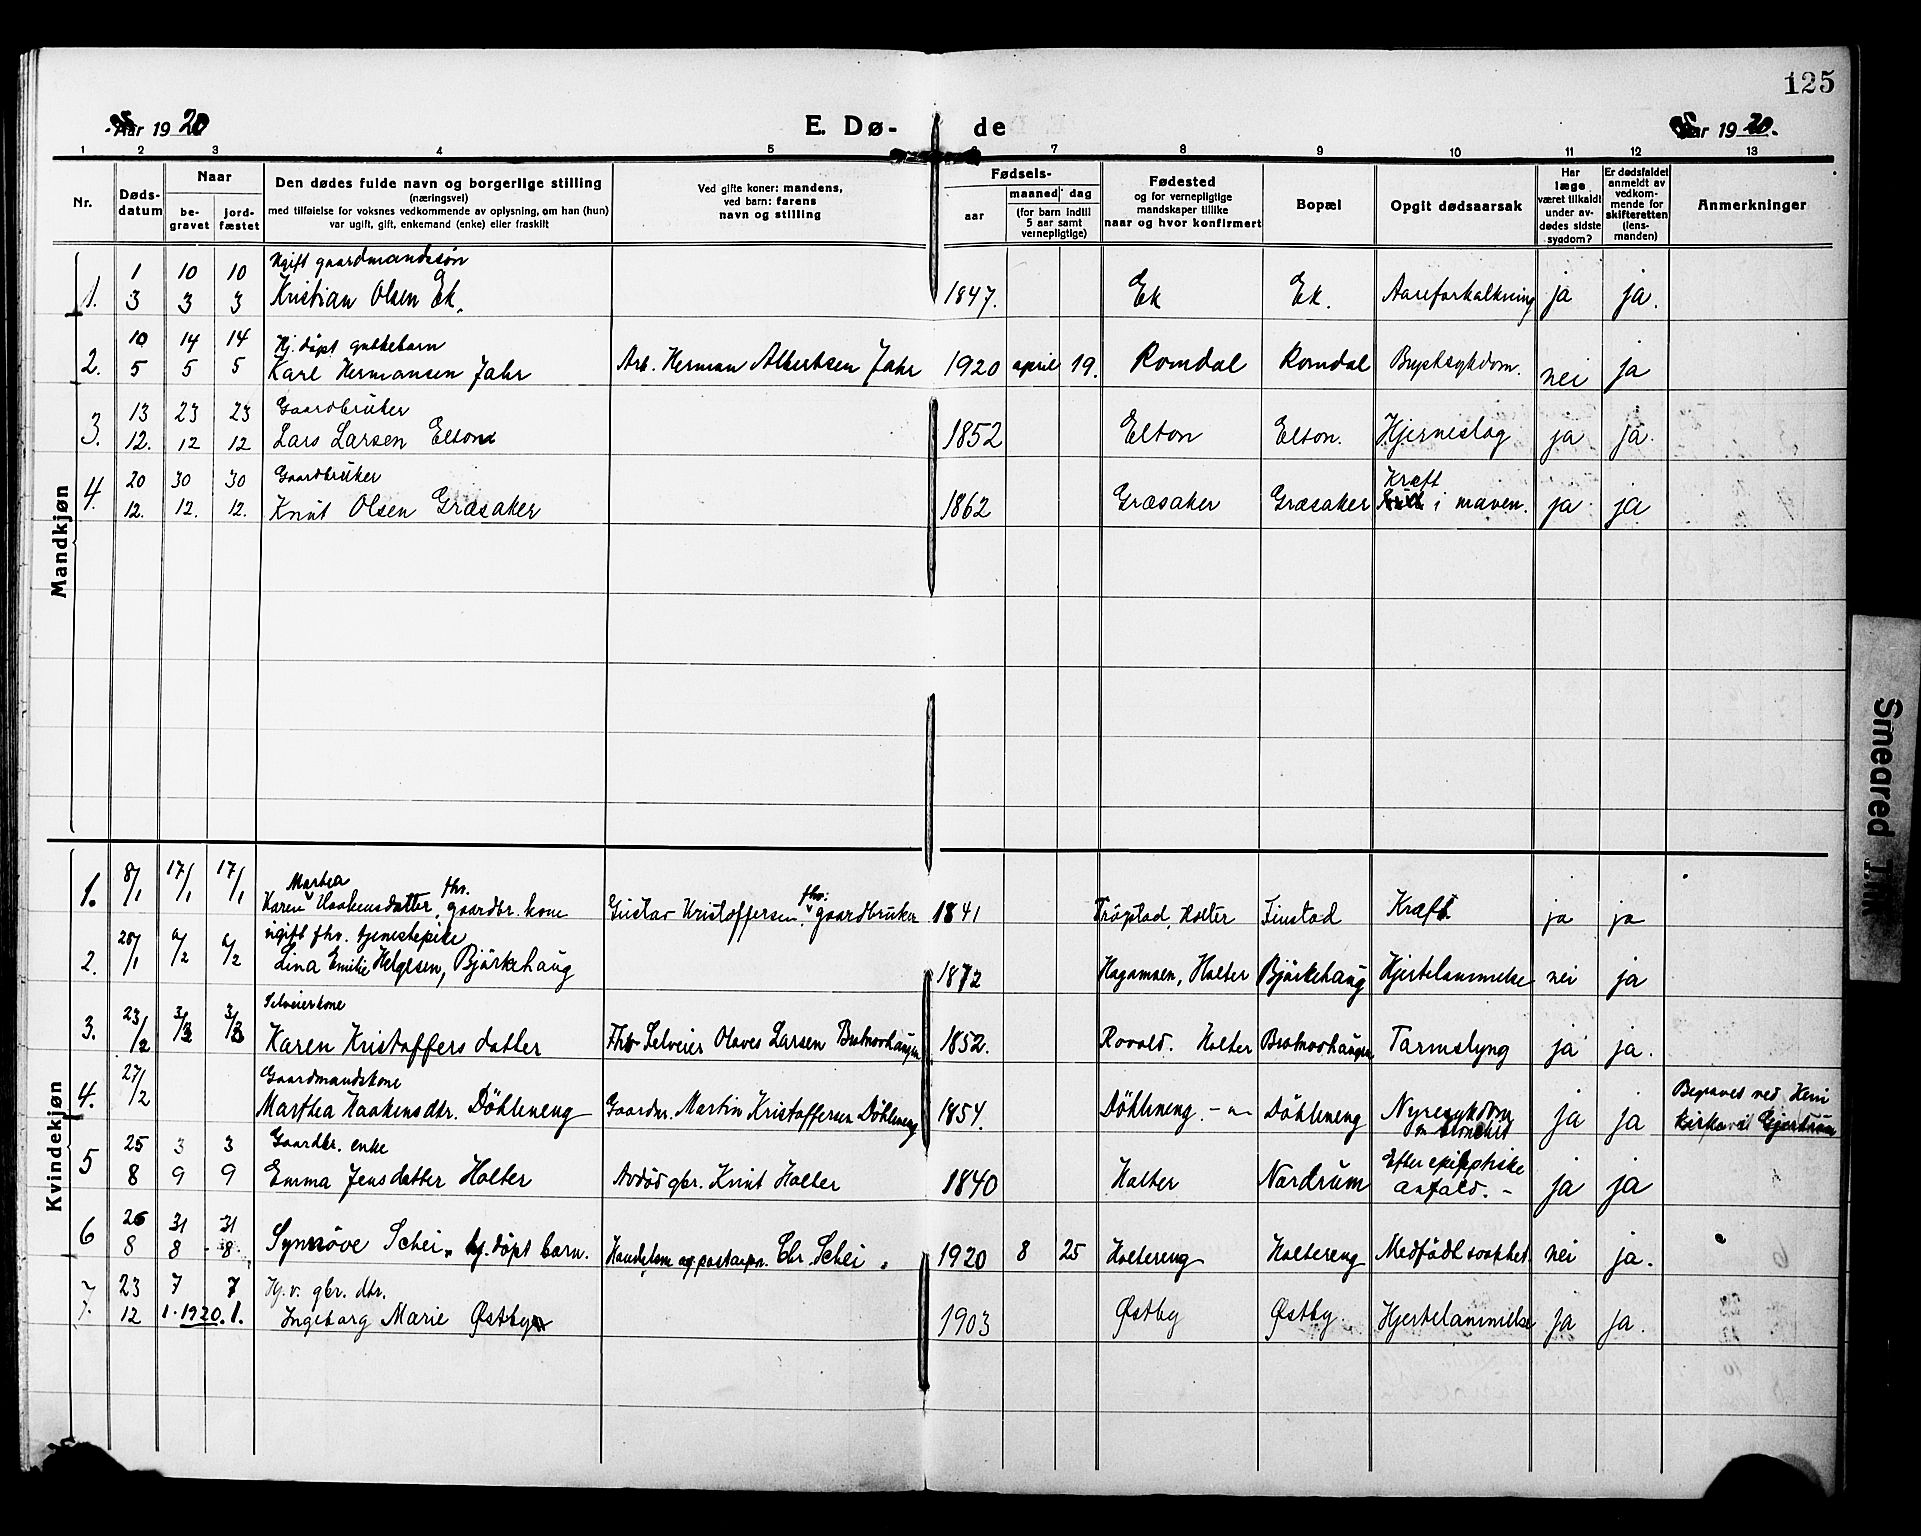 125
Aar 1920
E. Dø-
de
Aar 1920.
1 2 3 4 5 6 7 8 9 10 11 12 13
Nr.
Døds-
datum
Naar
be-
gravet
jord-
fæstet
Den dødes fulde navn og borgerlige stilling
(næringsvei)
med tilføielse for voksnes vedkommende av oplysning, om han (hun)
var ugift, gift, enkemand (enke) eller fraskilt
Ved gifte koner: mandens,
ved barn: farens
navn og stilling
Fødsels-
aar
maaned dag
(for barn indtil
5 aar samt
vernepligtige)
Fødested
og for vernepligtige
mandskaper tillike
naar og hvor konfirmert
Bopæl
Opgit dødsaarsak
Har
læge
været tilkaldt
under av-
dødes sidste
sygdom?
Er dødsfaldet
anmeldt av
vedkom-
mende for
skifteretten
(lens-
manden)
Anmerkninger
Mandkjøn
1 10 10 Ugift gaardmandssøn
1. 3 3 3 Kristian Olsen Ek. 1847. Ek Ek. Aareforkalkning ja ja.
10 14 14 Hj. døpt guttebarn
2. 5 5 5 Karl Hermansen Jahr Arb. Herman Albertsen Jahr 1920 april 19. Romdal Romdal Brystsykdom. nei ja
13 23 23 Gaardbruker
3. 12. 12 12 Lars Larsen Elton 1852 Elton Elton. Hjerneslag ja ja.
20 30 30 Gaardbruker Kræft
4. 12. 12. 12. Knut Olsen Græsaker 1862 Græsaker Græsaker i maven. ja ja
Kvindekjøn
Marthea fhv. fhv.
1. 8/1 17/1 17/1 Karen Haakensdatter, gaardbr. kone Gustav Kristoffersen, gaardbruker 1841 Frøystad, Holter Finstad Kræft ja ja
ugift fhv. tjenestepike
2. 28/1 6/2 6/2 Lina Emilie Helgesen, Bjørkehaug 1872 Hagamoen, Holter Bjørkehaug Hjertelammelse nei ja
Selveierkone
3. 23/2 3/3 3/3 Karen Kristoffersdatter Fhv. Selveier Olaves Larsen Bratvoldhaugen 1852. Rovold. Holter Tarmslyng ja ja.
Gaardmandskone
4. 27/2 Marthea Haakensdtr. Döhleneng Gaardm. Martin Kristoffersen Döhleneng 1854. Döhleneng. — " — Döhleneng Nyresykdom ja ja Begraves ved Heni
kirke i Gjerdrum
25 3 3 Gaardbr. enke Efter epileptiske
5 8 9 9 Emma Jensdatter Holter Avdød gbr. Knut Holter 1840 Holter Nordrum anfald. — ja ja
26 31 31
6 8 8 8. Synnöve Schei, hj. döpt barn. Handelsm. og postaapn. Chr. Schei. 1920 8 25 Holtereng Holtereng Medfödt svakhet nei ja.
23 7 7 Hj. v. gbr. dtr.
7. 12 1. 1920. 1. Ingeborg Marie Østby 1903 Østby Østby. Hjertelammelse ja ja.
Smeared Ink